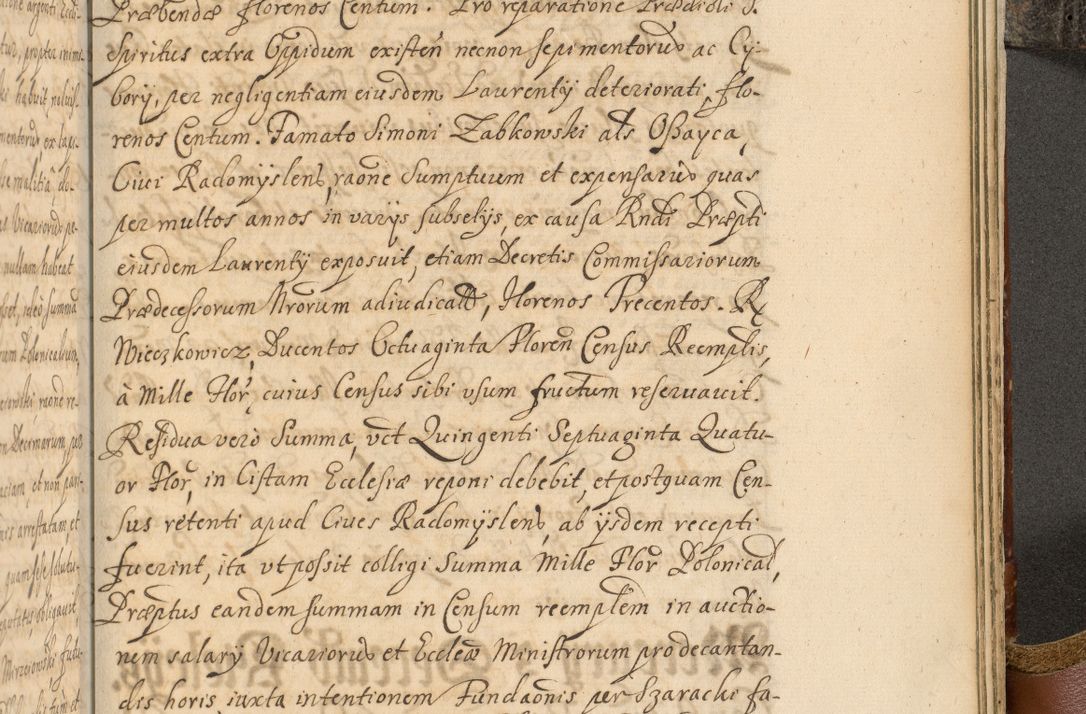 Præbendæ florenos Centum. Pro reparatione Prædioli S.
Spiritus extra Oppidum existen̄ necnon sepimentoruɔ ac Cy-
borÿ, per negligentiam eiusdem Laurentÿ deteriorati, flo-
renos Centum. Famato Simoni Zabkowski als Oßayca,
Ciui Radomÿslens, raōne Sumptuum et expensaruɔ quas
per multos annos in varÿs subselÿs, ex causa Rndi Præpti
eiusdem Laurentÿ exposuit, etiam Decretis Commissariorum
Prædecessorum Nrorum adiudicatt, Florenos Trecentos. R
Wieczkowicz, Ducentos Octuaginta Floren̄ Census Reemplis,
à Mille Flor̄, cuius Census sibi vsum fructum reseruauit.
Residua verò Summa, vct Quingenti Septuaginta Quatu-
or Flor̄, in Cistam Ecclesiæ reponi debebit, et postquam Cen-
sus retenti apud Ciues Radomÿslens, ab ÿsdem recepti
fuerint, ita vt possit colligi Summa Mille Flor̄ Polonical,
Præptus eandem summam in Censum reemplem in auctio-
nem salarÿ Vicarioruɔ et Eccleæ Ministrorum pro decantan-
dis horis iuxta intentionem Fundaōnis per Szaracki fa-